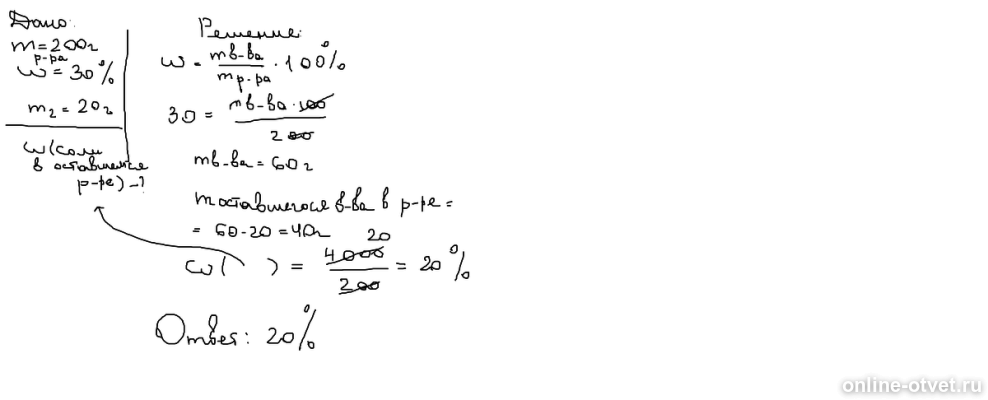 Дано:
m = 200г
р-ра
ω = 30%
m₂ = 20г
ω(соли
в оставшемся
р-ре) -?
Решение:
ω = mв-ва / mр-ра · 100%
30 = mв-ва · 100 / 200
mв-ва = 60г
mоставшегося в-ва в р-ре =
= 60-20 = 40г
20
ω( ) = 4000 / 200 = 20%
Ответ: 20%
online-otvet.ru